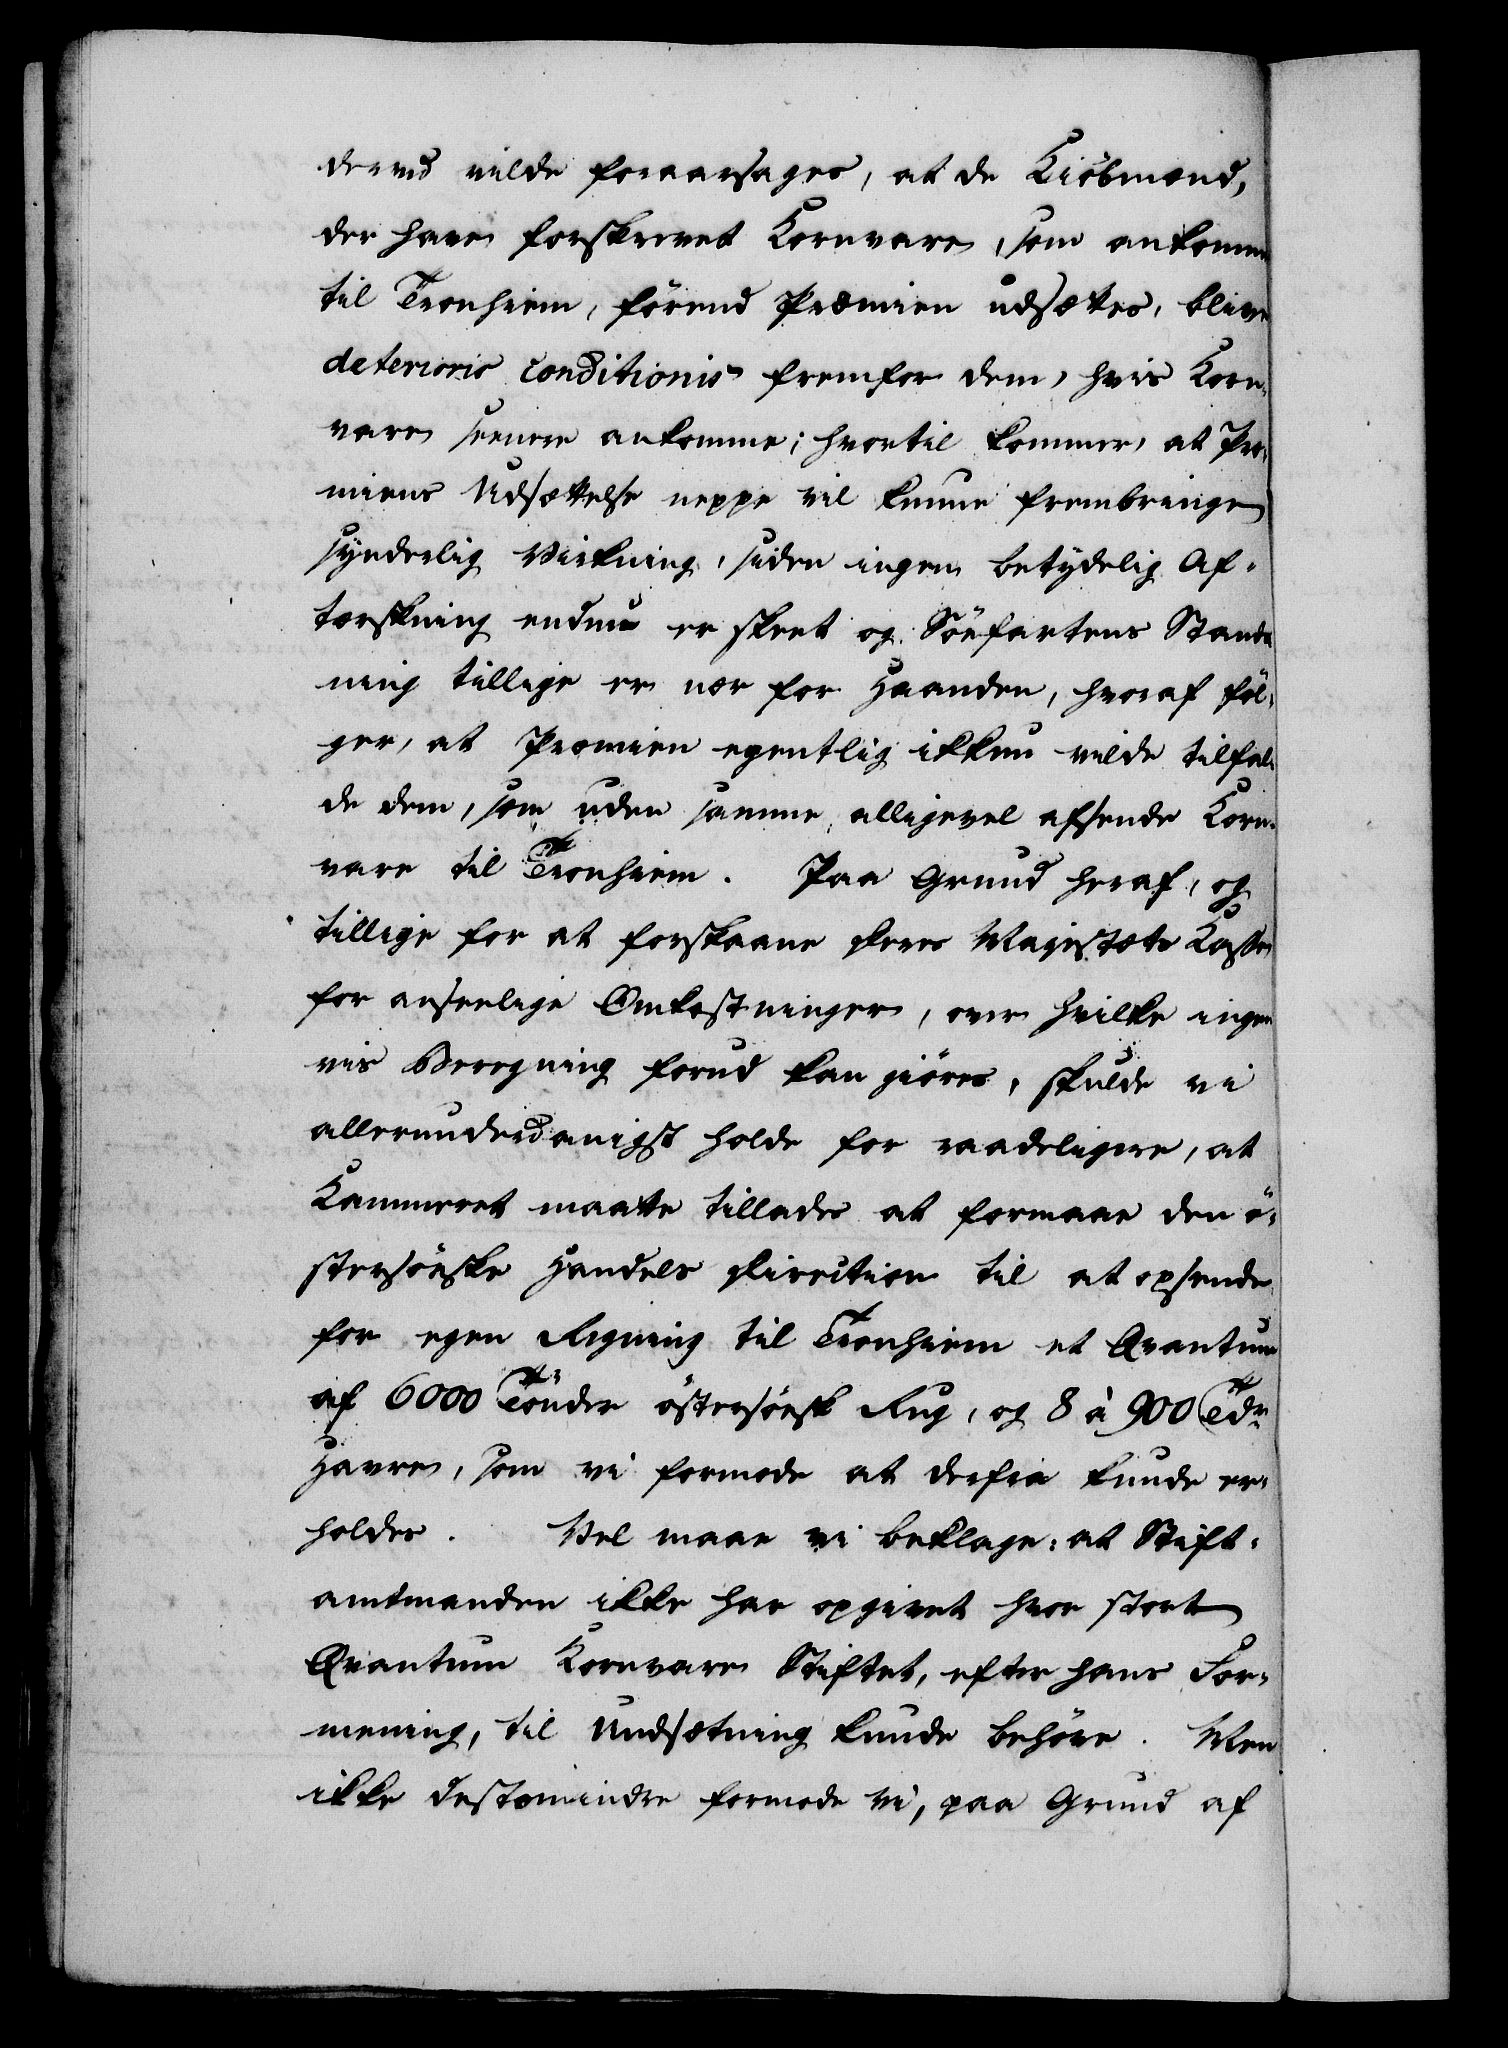 derved vilde foraarsages, at de Kiöbmænd,
der have forskrevet Kornvare, som ankomme
til Tronhiem, förend Præmien udsættes, blive
deterioris conditionis fremfor dem, hvis Korn-
vare senere ankomme; hvortil kommer, at Præ-
miens Udsættelse neppe vil kunne frembringe
synderlig Virkning, siden ingen betydelig Af-
tærskning endnu er skeet og Söefartens Stands
ning tillige er nær for Haanden, hvoraf föl-
ger, at Præmien egentlig ikkun vilde tilfal-
de dem, som uden samme, alligevel afsende Korn-
vare til Tronhiem. Paa Grund heraf, og
tillige for at forskaane Deres Majestæts Kasse
for anseelige Omkostninger, over hvilke ingen
vis Beregning forud kan giöres, skulde vi
allerunderdanigst holde for raadeligere, at
Kammeret maatte tillades at formaae den ö-
stersöeske Handels Direction til at opsende
for egen Regning til Tronhiem et Qvantum
af 6000 Tönder östersöesk Rug, og 8 à 900 Tdr
Havre, som vi formode at derfra kunde er-
holdes. Vel maae vi beklage, at Stift-
amtmanden ikke har opgivet hvor stort
Qvantum Kornvare Stiftet, efter hans For-
mening, til Undsætning kunde behöve. Men
ikke destomindre formode vi, paa Grund af